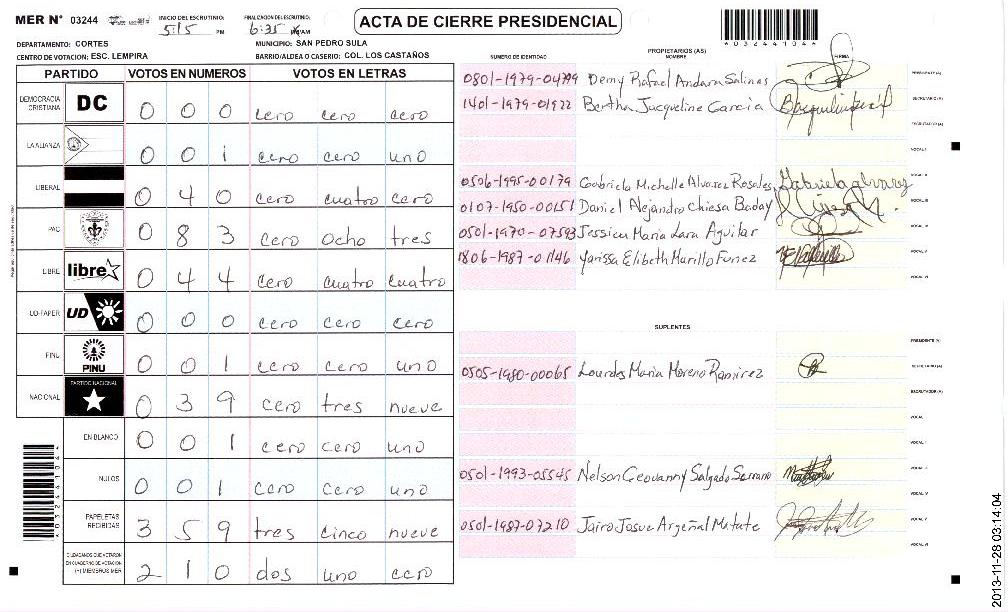 MER N° 03244
INICIO DEL ESCRUTINIO: 5:15 PM
FINALIZACION DEL ESCRUTINIO: 6:35
ACTA DE CIERRE PRESIDENCIAL
DEPARTAMENTO: CORTES
MUNICIPIO: SAN PEDRO SULA
CENTRO DE VOTACION: ESC. LEMPIRA
BARRIO/ALDEA O CASERIO: COL. LOS CASTAÑOS
PARTIDO VOTOS EN NUMEROS VOTOS EN LETRAS
DEMOCRACIA CRISTIANA DC 0 0 0 cero cero cero
LA ALIANZA 0 0 1 cero cero uno
LIBERAL 0 4 0 cero cuatro cero
PAC 0 8 3 cero ocho tres
LIBRE libre 0 4 4 cero cuatro cuatro
UD-FAPER UD 0 0 0 cero cero cero
PINU PINU 0 0 1 cero cero uno
NACIONAL PARTIDO NACIONAL 0 3 9 cero tres nueve
EN BLANCO 0 0 1 cero cero uno
NULOS 0 0 1 cero cero uno
PAPELETAS RECIBIDAS 3 5 9 tres cinco nueve
CIUDADANOS QUE VOTARON EN CUADERNO DE VOTACION (+) MIEMBROS MER 2 1 0 dos uno cero
PROPIETARIOS (AS)
NUMERO DE IDENTIDAD NOMBRE FIRMA
0801-1979-04799 Demy Rafael Andara Salinas PRESIDENTE (A)
1401-1979-01922 Bertha Jacqueline Garcia SECRETARIO (A)
ESCRUTADOR (A)
VOCAL I
0506-1995-00179 Gabriela Michelle Alvarez Rosales Gabriela alvarez VOCAL II
0107-1950-00151 Daniel Alejandro Chiesa Baday VOCAL III
0501-1970-07593 Jessica Maria Lara Aguilar VOCAL IV
1806-1987-01146 Yarissa Elibeth Murillo Funez VOCAL V
VOCAL VI
SUPLENTES
PRESIDENTE (A)
0505-1980-00065 Lourdes Maria Moreno Ramirez SECRETARIO (A)
ESCRUTADOR (A)
VOCAL
VOCAL
0501-1993-05545 Nelson Geovanny Salgado Serrano VOCAL
VOCAL IV
0501-1987-07210 Jairo Josue Argeñal Matute VOCAL V
VOCAL VI
2013-11-28 03:14:04